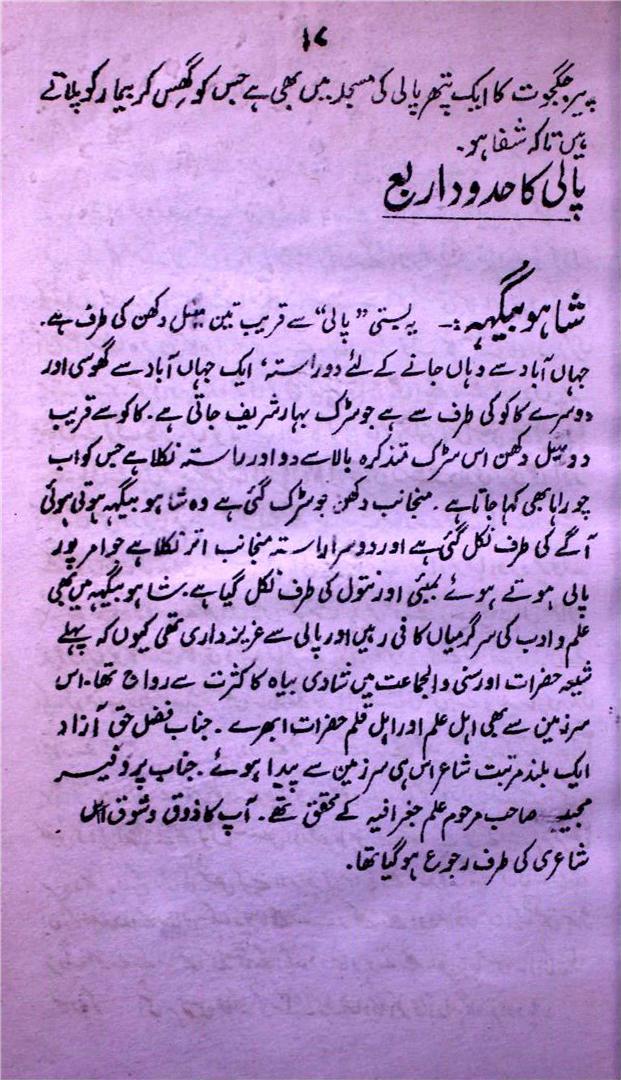 ۱۷
پیر جگجوت کا ایک پتھر پالی کی مسجد میں بھی ہے جس کو گھس کر بیمار کو پلاتے
ہیں تاکہ شفا ہو۔
پالی کا حدود اربع
شاہو بیگہہ :- یہ بستی "پالی" سے قریب تین میل دکھن کی طرف ہے۔
جہاں آباد سے وہاں جانے کے لئے دو راستہ، ایک جہاں آباد سے گھوسی اور
دوسرے کاکو کی طرف سے ہے جو سڑک بہار شریف جاتی ہے۔ کاکو سے قریب
دو میل دکھن اس سڑک متذکرہ بالا سے دو اور راستہ نکلا ہے جس کو اب
چوراہا بھی کہا جاتا ہے۔ منجانب دکھن جو سڑک گئی ہے وہ شاہو بیگہہ ہوتی ہوئی
آگے کی طرف نکل گئی ہے اور دوسرا راستہ منجانب اتر نکلا ہے جو امر پور
پالی ہوتے ہوئے بمبئی اور نتول کی طرف نکل گیا ہے۔ شاہو بیگہہ میں بھی
علم و ادب کی سرگرمیاں کافی رہیں اور پالی سے عزیز داری تھی کیوں کہ پہلے
شیعہ حضرات اور سنی والجماعت میں شادی بیاہ کا کثرت سے رواج تھا۔ اس
سرزمین سے بھی اہل علم اور اہل قلم حضرات ابھرے۔ جناب فضل حق آزاد
ایک بلند مرتبت شاعر اس ہی سرزمین سے پیدا ہوئے۔ جناب پروفیسر
صاحب مرحوم علم جغرافیہ کے محقق تھے۔ آپ کا ذوق و شوق
شاعری کی طرف رجوع ہو گیا تھا۔